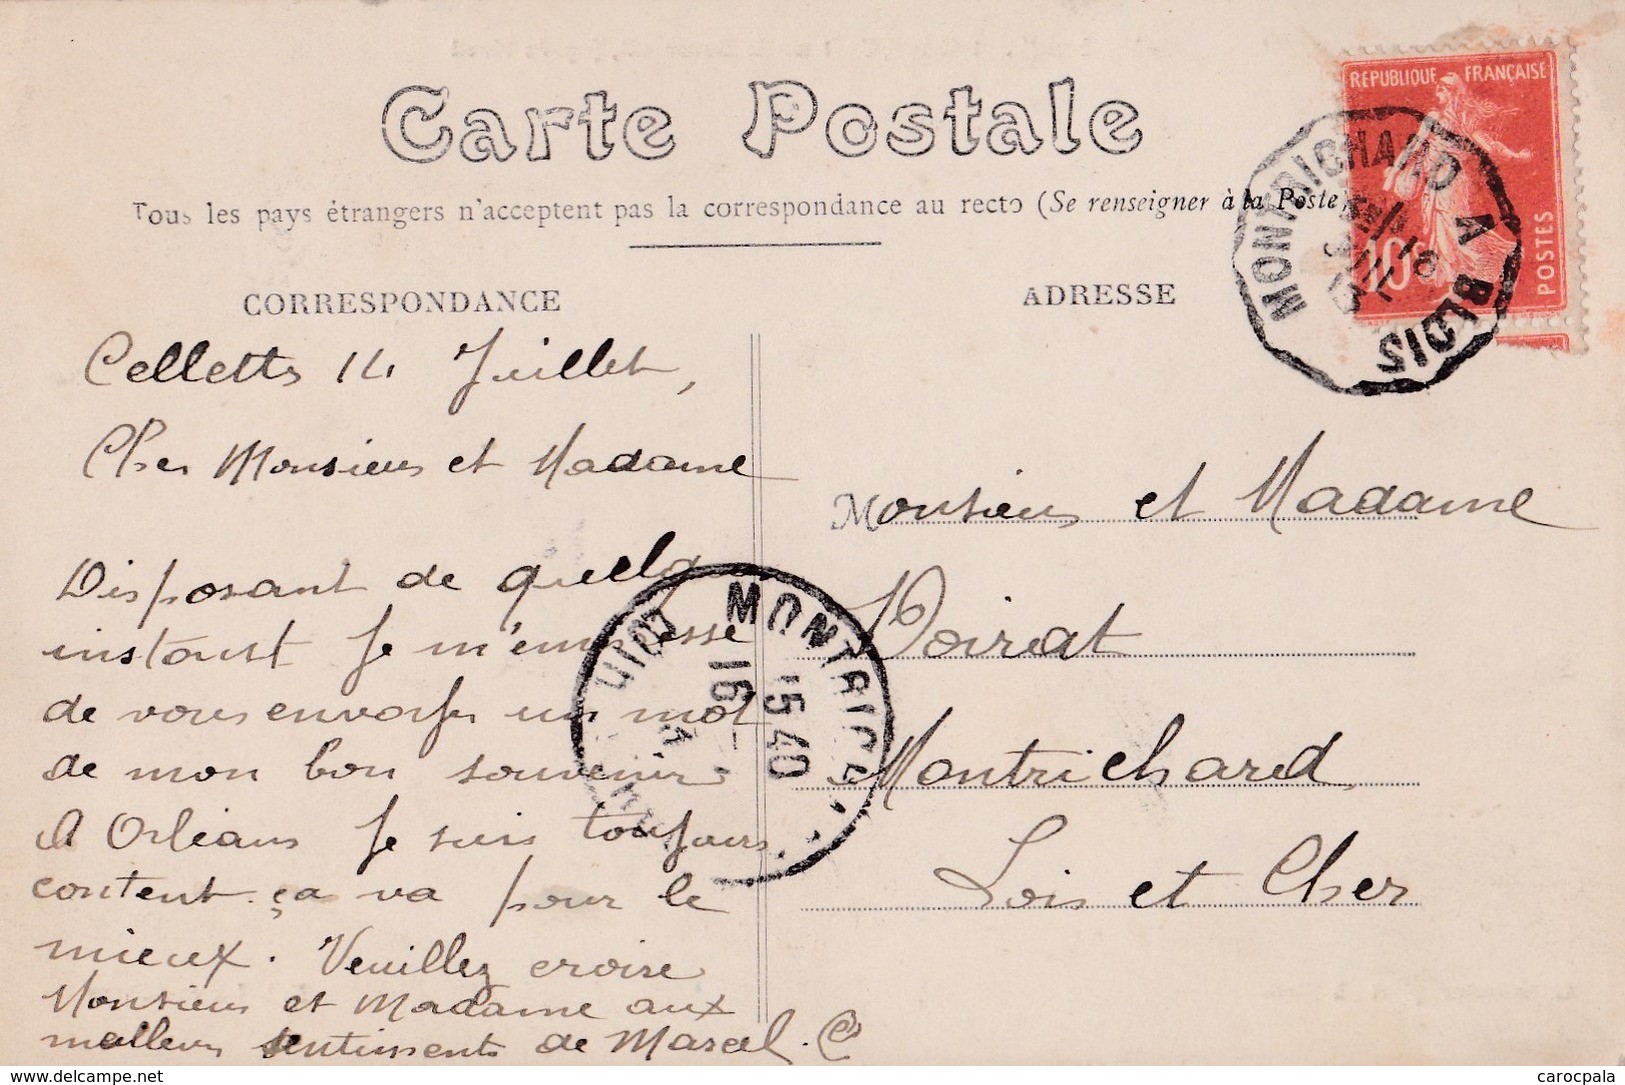 Carte Postale
Tous les pays étrangers n'acceptent pas la correspondance au recto (Se renseigner à la Poste)
CORRESPONDANCE
ADRESSE
REPUBLIQUE FRANÇAISE
10
POSTES
MONTRICHARD A BLOIS
Cellettes 14 Juillet,
Cher Monsieur et Madame
Disposant de quelq
instant je m'empresse
de vous envoyer un mot
de mon bon souvenir
A Orléans je suis toujours
content. ça va pour le
mieux. Veuillez croire
Monsieur et Madame aux
meilleurs sentiments de Marcel. C
MONTRICH
15 40
16 -
Monsieur et Madame
Poirat
Montrichard
Loir et Cher
carocpala